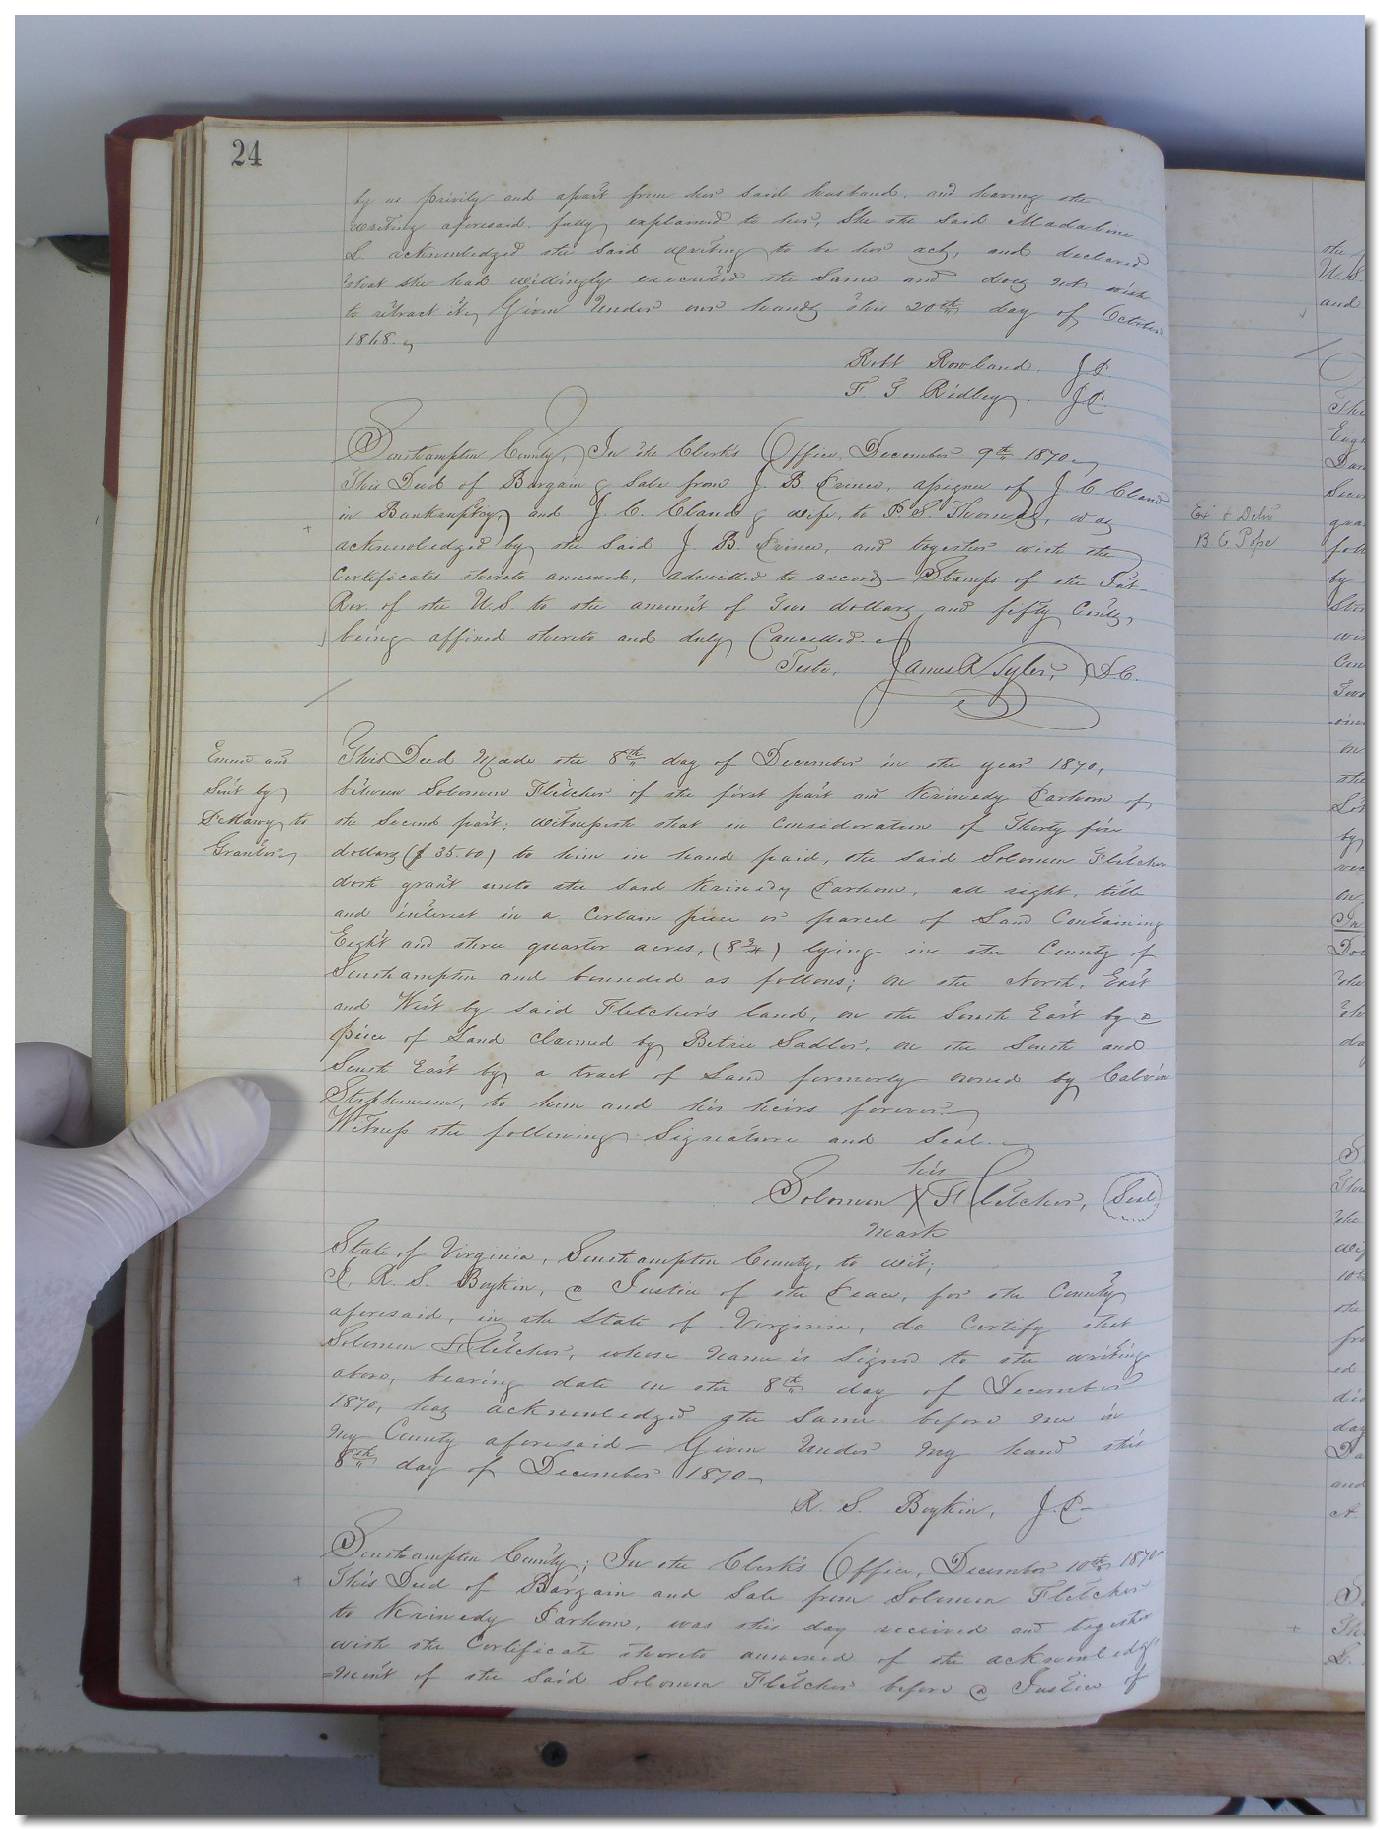 24
by us privily and apart from her said husband, and having the
writing aforesaid fully explained to her, She the said Madaline
L. acknowledged the said writing to be her act, and declared
that she had willingly executed the same and does not wish
to retract it, Given Under our hands this 20th day of October
1868.
Robt Rowland. J.P.
F G Ridley. J.P.
Southampton County, In the Clerk's Office, December 9th 1870
This Deed of Bargain & Sale from J. B. Prince, assignee of J C Claud
in Bankruptcy, and J. C. Claud & wife, to P. S. Thomas, was
acknowledged by the said J. B. Prince, and together with the
Certificates thereto annexed, admitted to record - Stamps of the Int-
Rev. of the U.S. to the amount of Two dollars and fifty Cents,
being affixed thereto and duly Cancelled.
Teste, James R Tyler, D.C.
Exmd and
Sent by
to
Grantor
This Deed Made the 8th day of December in the year 1870,
between Solomon Fletcher of the first part and Kennedy Parham of
the second part: witnesseth that in consideration of Thirty five
dollars ($ 35.00) to him in hand paid, the said Solomon Fletcher
doth grant unto the said Kennedy Parham, all right, title
and interest in a certain piece or parcel of Land Containing
Eight and three quarter acres, (8 3/4) lying in the County of
Southampton and bounded as follows; on the North, East
and West by said Fletcher's land, on the South East by a
piece of Land claimed by Betsie Sadler, on the South and
South East by a tract of Land formerly owned by Calvin
Stephenson, to him and his heirs forever.
Witness the following Signature and Seal.
his
Solomon X Fletcher, Seal
mark
State of Virginia, Southampton County, to wit;
I, R. S. Boykin, a Justice of the Peace, for the County
aforesaid, in the State of Virginia, do Certify that
Solomon Fletcher, whose name is signed to the writing
above, bearing date on the 8th day of December
1870, has acknowledged the same before me in
my County aforesaid - Given Under my hand this
8th day of December 1870
R. S. Boykin, J.P.
Southampton County; In the Clerk's Office, December 10th 1870
This Deed of Bargain and Sale from Solomon Fletcher
to Kennedy Parham, was this day received and together
with the Certificate thereto annexed of the acknowledg
=ment of the said Solomon Fletcher before a Justice of
B C Pope
U.S.
and